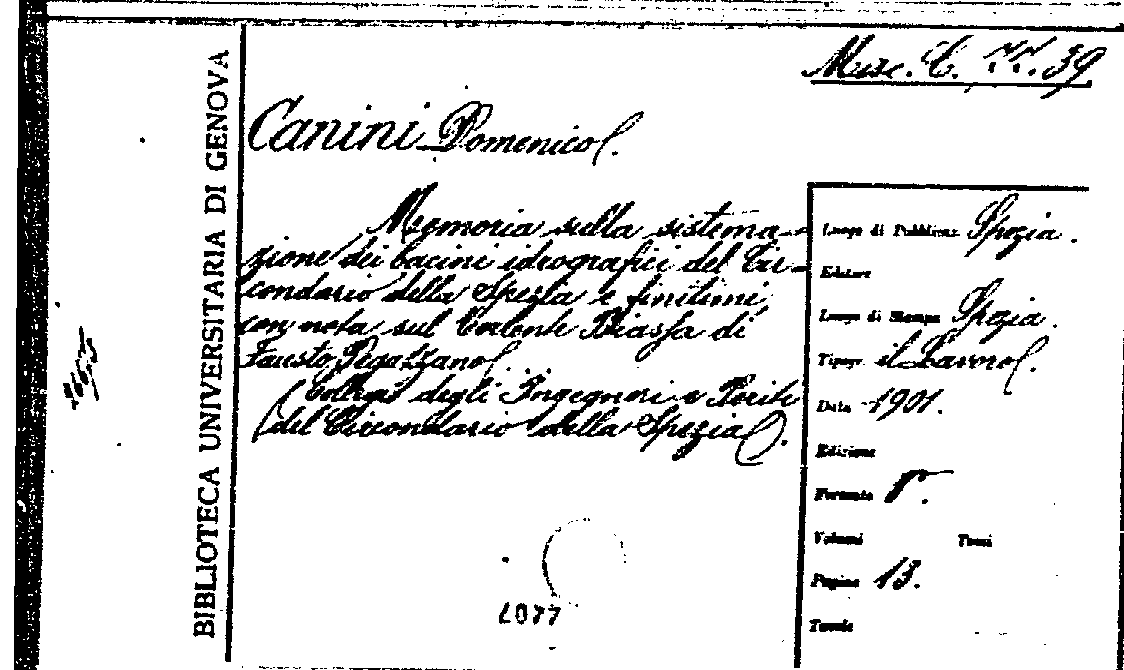 BIBLIOTECA UNIVERSITARIA DI GENOVA
Misc. C. 39
Canini Domenico.
Memoria sulla sistema-
zione dei bacini idrografici del Cir-
condario della Spezia e finitimi
con nota sul torrente Biassa di
Fausto Pegazzano.
(Collegio degli Ingegneri e Periti
del Circondario della Spezia).
Luogo di Pubblicaz. Spezia.
Editore
Luogo di Stampa Spezia.
Tipogr. il Lavoro.
Data 1901.
Edizione
Formato 8°.
Volumi Tomi
Pagine 13.
Tavole